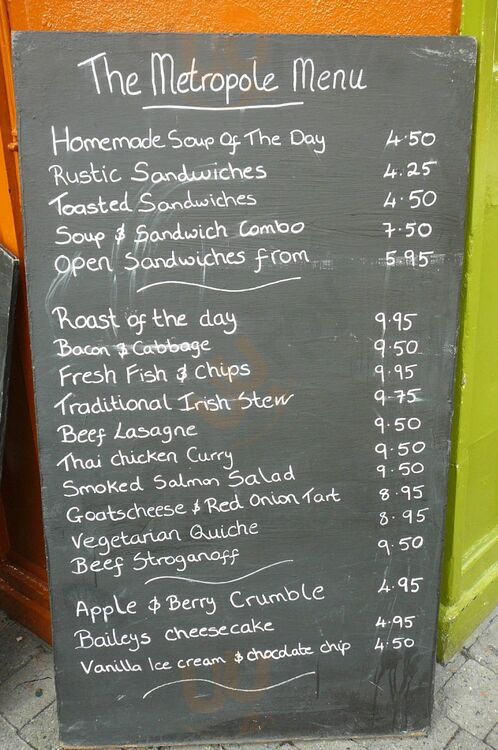 The Metropole Menu
Homemade Soup Of The Day 4.50
Rustic Sandwiches 4.25
Toasted Sandwiches 4.50
Soup & Sandwich Combo 7.50
Open Sandwiches from 5.95
Roast of the day 9.95
Bacon & Cabbage 9.50
Fresh Fish & Chips 9.95
Traditional Irish Stew 9.75
Beef Lasagne 9.50
Thai chicken Curry 9.50
Smoked Salmon Salad 9.50
Goatscheese & Red Onion Tart 8.95
Vegetarian Quiche 8.95
Beef Stroganoff 9.50
Apple & Berry Crumble 4.95
Baileys cheesecake 4.95
Vanilla Ice cream & chocolate chip 4.50